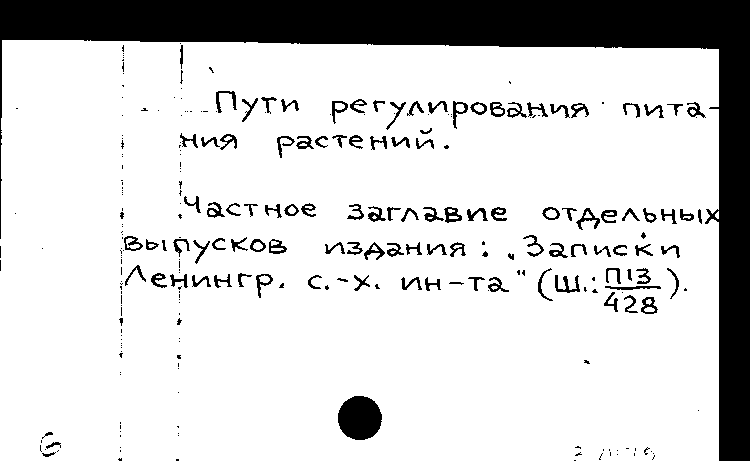 Пути регулирования пита-
ния растений.
Частное заглавие отдельных
выпусков издания: „Записки
Ленингр. с.-х. ин-та" (Ш.: П13/428).
6